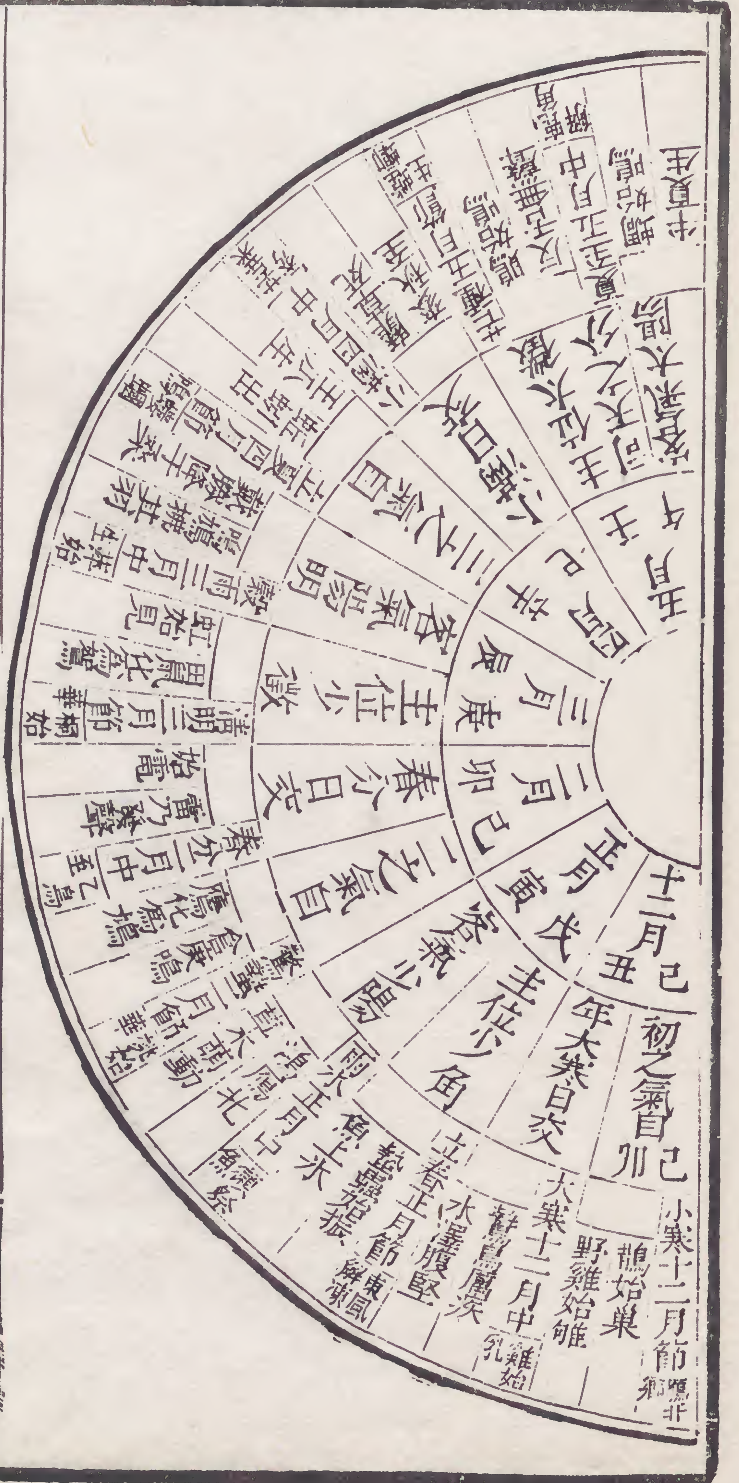 十二月
己丑
正月
戊寅
二月
己卯
三月
庚辰
四月
辛巳
五月
壬午
初之氣自己卯
年大寒日交
主位少角
客氣少陽
二之氣自
春分日交
主位少徵
客氣陽明
三之氣自
小滿日交
主位太徵
司天之分
客氣太陽
小寒十二月節 鴈北鄉
鵲始巢
野雞始雊
大寒十二月中 雞始乳
鷙鳥厲疾
水澤腹堅
立春正月節 東風解凍
蟄蟲始振
魚上氷
雨水正月中 獺祭魚
鴻鴈北
草木萌動
驚蟄二月節 桃始華
倉庚鳴
鷹化為鳩
春分二月中 乙鳥至
雷乃發聲
始電
清明三月節 桐始華
田鼠化為鴽
虹始見
穀雨三月中 萍始生
鳴鳩拂其羽
戴勝降于桑
立夏四月節 螻蟈鳴
蚯蚓出
王瓜生
小滿四月中 苦菜秀
靡草死
麥秋至
芒種五月節 螳螂生
鵙始鳴
反舌無聲
夏至五月中 鹿角解
蜩始鳴
半夏生